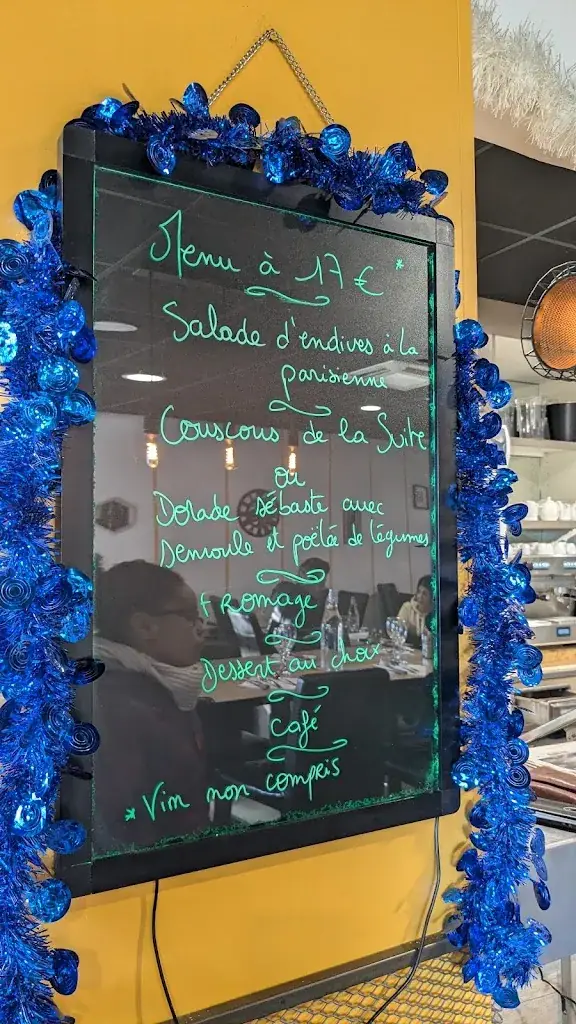 Menu à 17 € *
Salade d'endives à la
parisienne
Couscous de la Suite
ou
Dorade sébaste avec
Semoule et poêlée de légumes
fromage
Dessert au choix
café
* Vin non compris